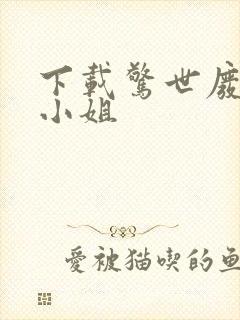 下載驚世廢
小姐
愛被猫喫的魚